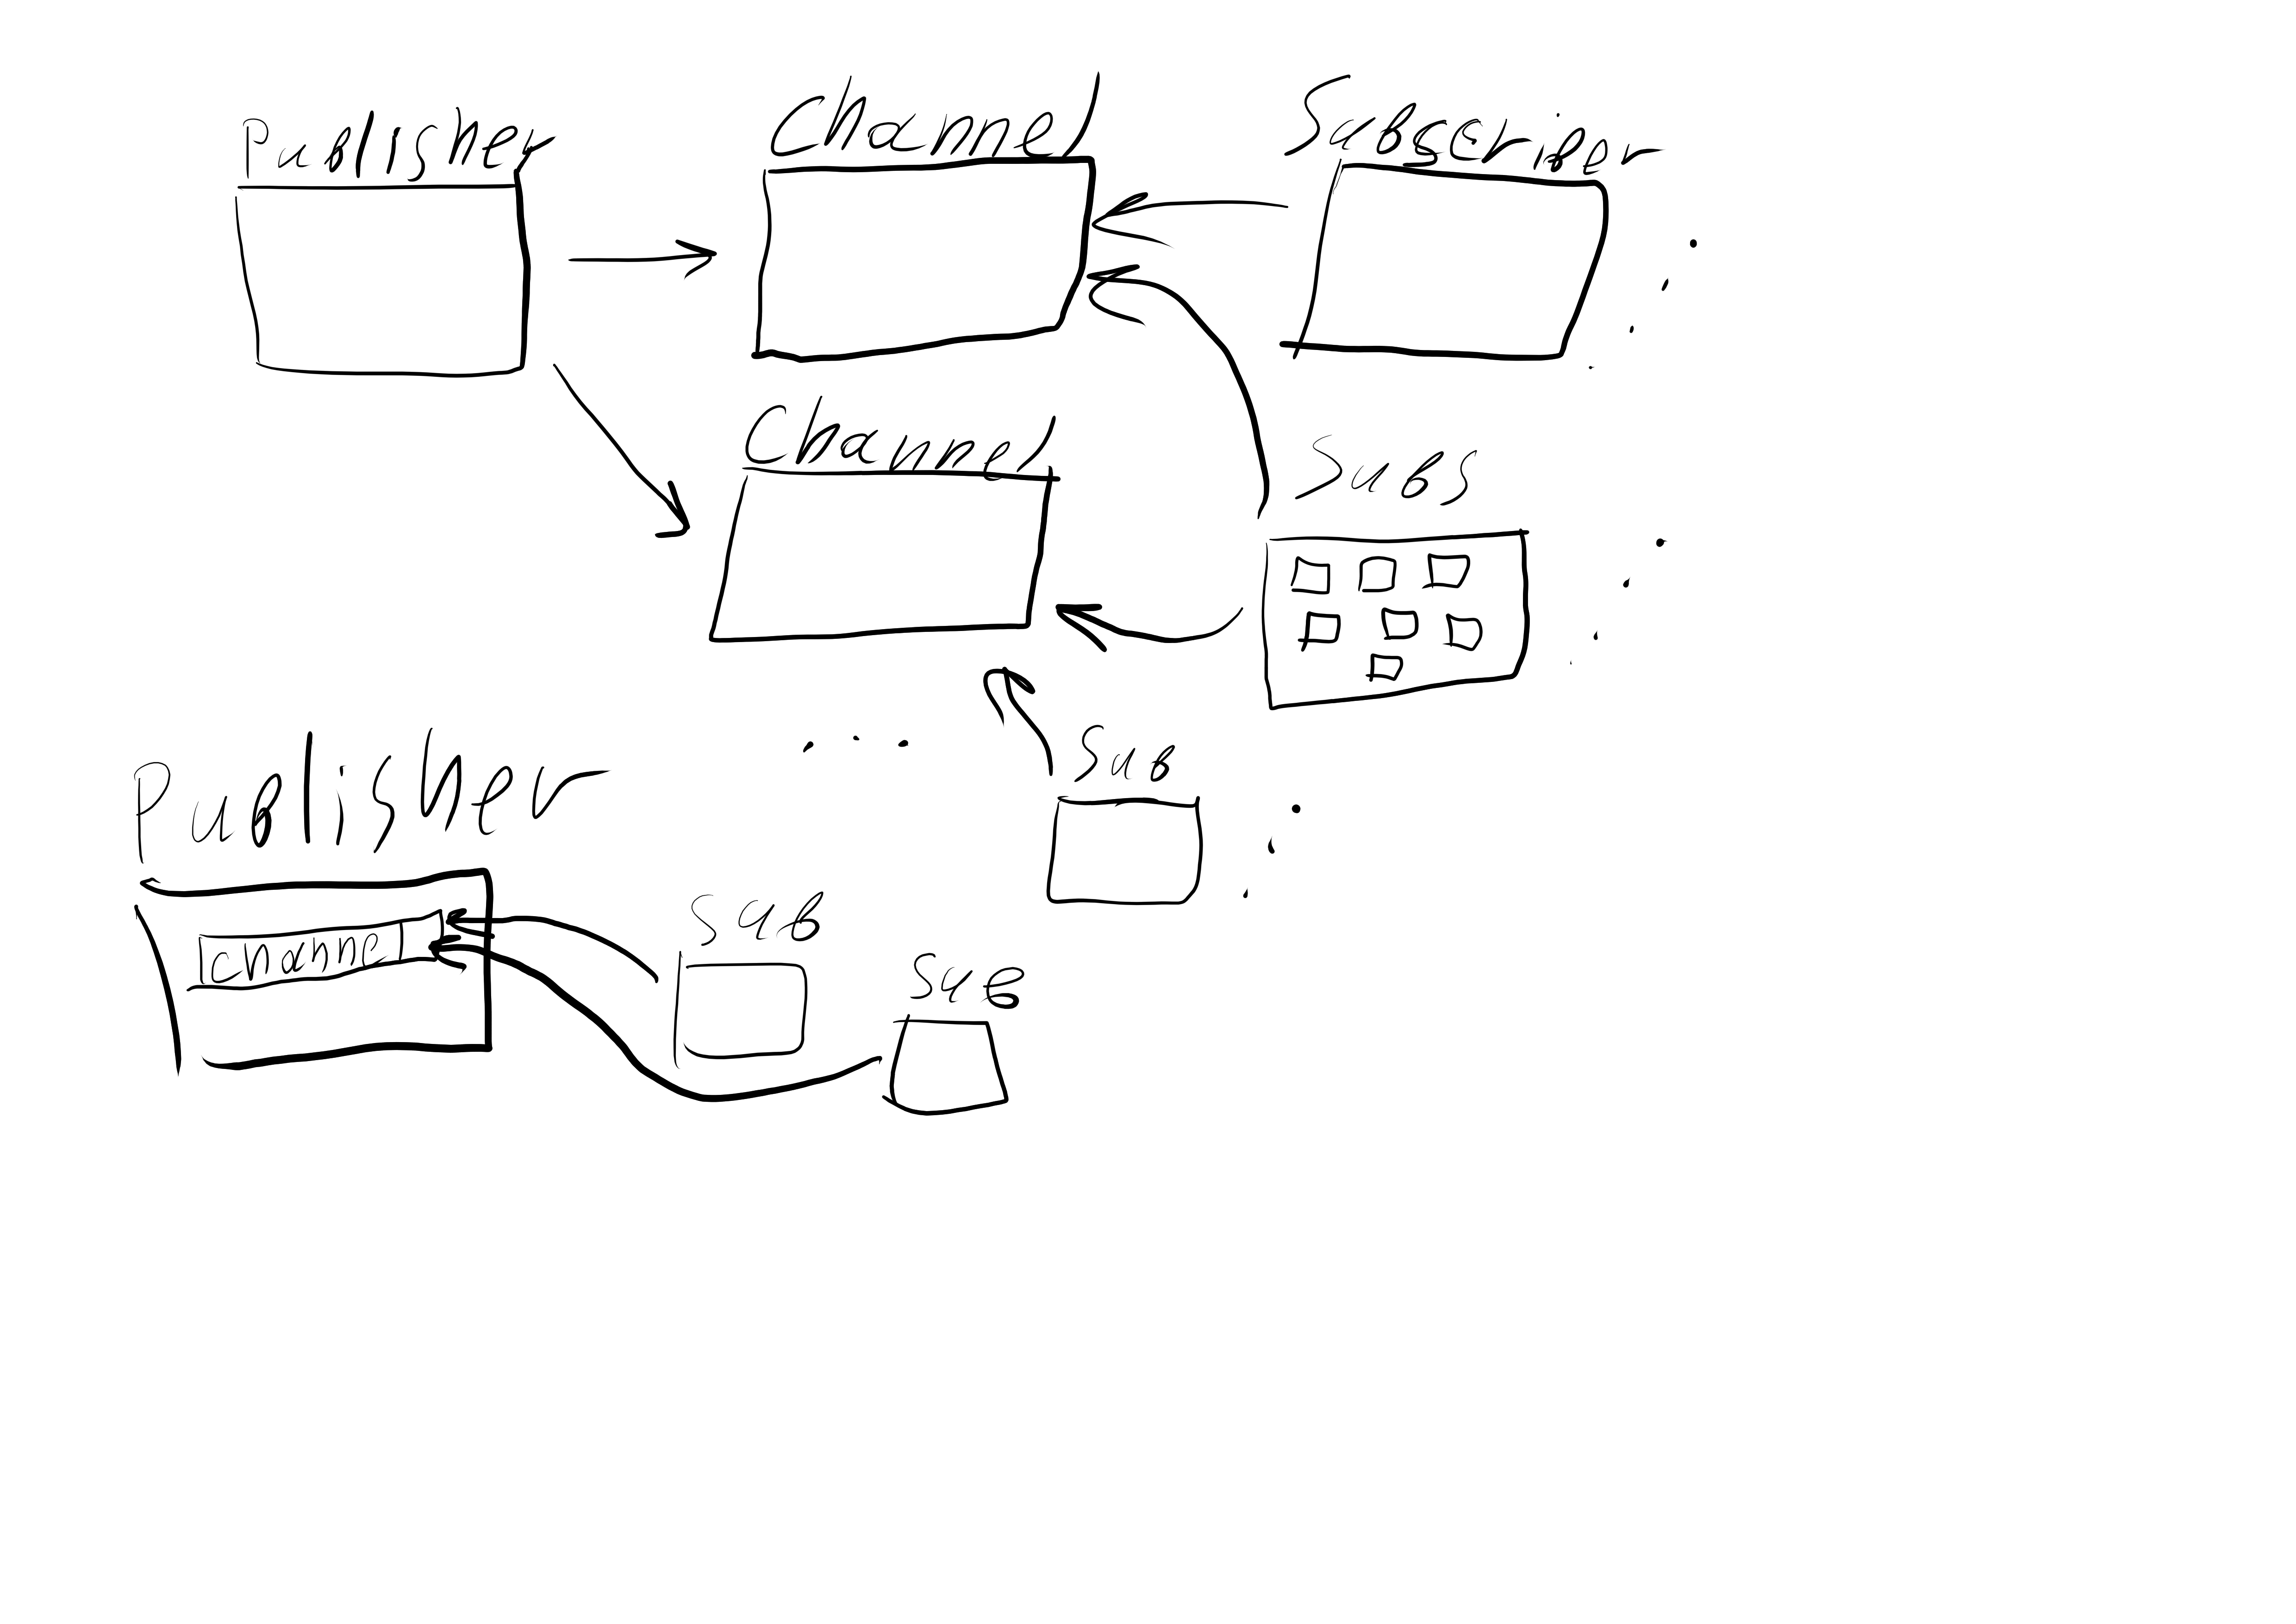 Publisher
Channel
Subscriber
Channel
Subs
Publisher
Sub
Channel
Sub
Sub